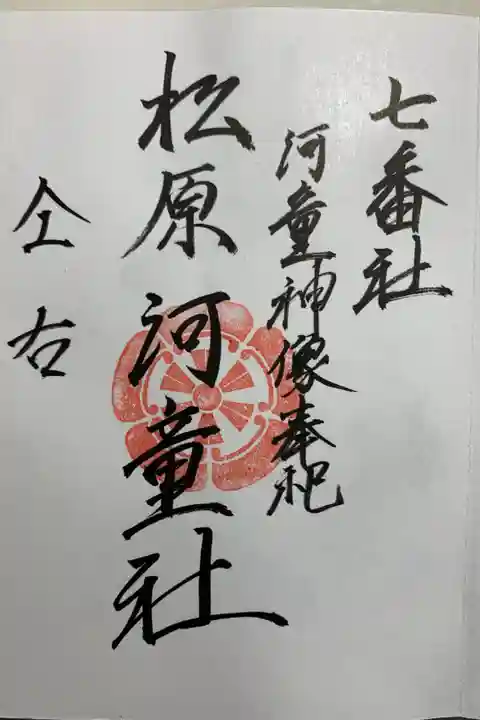 七番社
河童神像奉祀
松原河童社
仝右